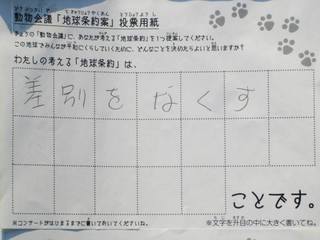 動物会議「地球条約案」投票用紙
きょうの「動物会議」に、あなたが考える「地球条約」を1つ提案してください。
この地球でみんなが平和にくらしていくために、どんなことを決めたらよいと思いますか?
わたしの考える「地球条約」は、
差別をなくす
ことです。
※コンサートがはじまるまでに書いておいてくださいね。
※文字を升目の中に大きく書いてね。